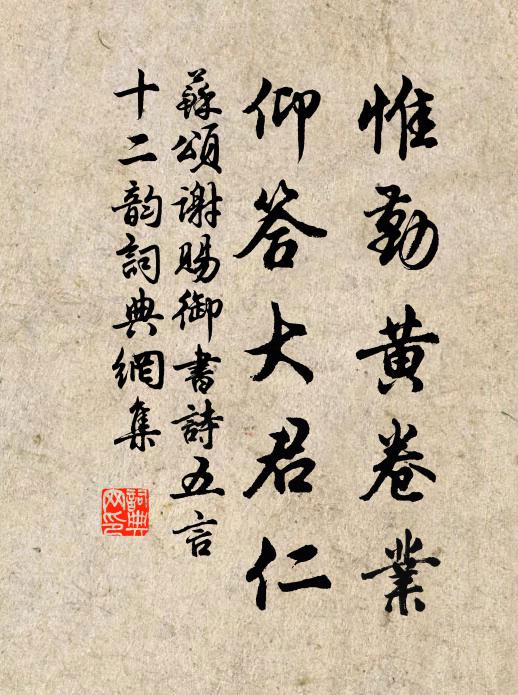 惟勤黄卷業
仰答大君仁
蘇頌謝賜御書詩五言
十二韵詞典網集
詞典
网印